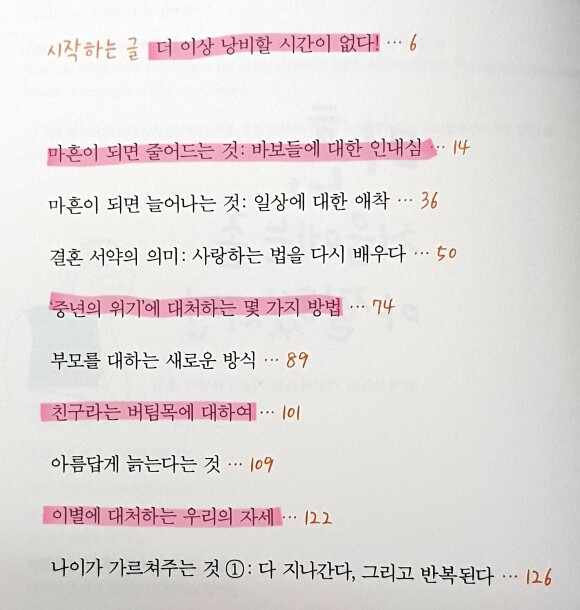 시작하는 글 더 이상 낭비할 시간이 없다! … 6
마흔이 되면 줄어드는 것: 바보들에 대한 인내심 … 14
마흔이 되면 늘어나는 것: 일상에 대한 애착 … 36
결혼 서약의 의미: 사랑하는 법을 다시 배우다 … 50
'중년의 위기'에 대처하는 몇 가지 방법 … 74
부모를 대하는 새로운 방식 … 89
친구라는 버팀목에 대하여 … 101
아름답게 늙는다는 것 … 109
이별에 대처하는 우리의 자세 … 122
나이가 가르쳐주는 것 ①: 다 지나간다, 그리고 반복된다 … 126